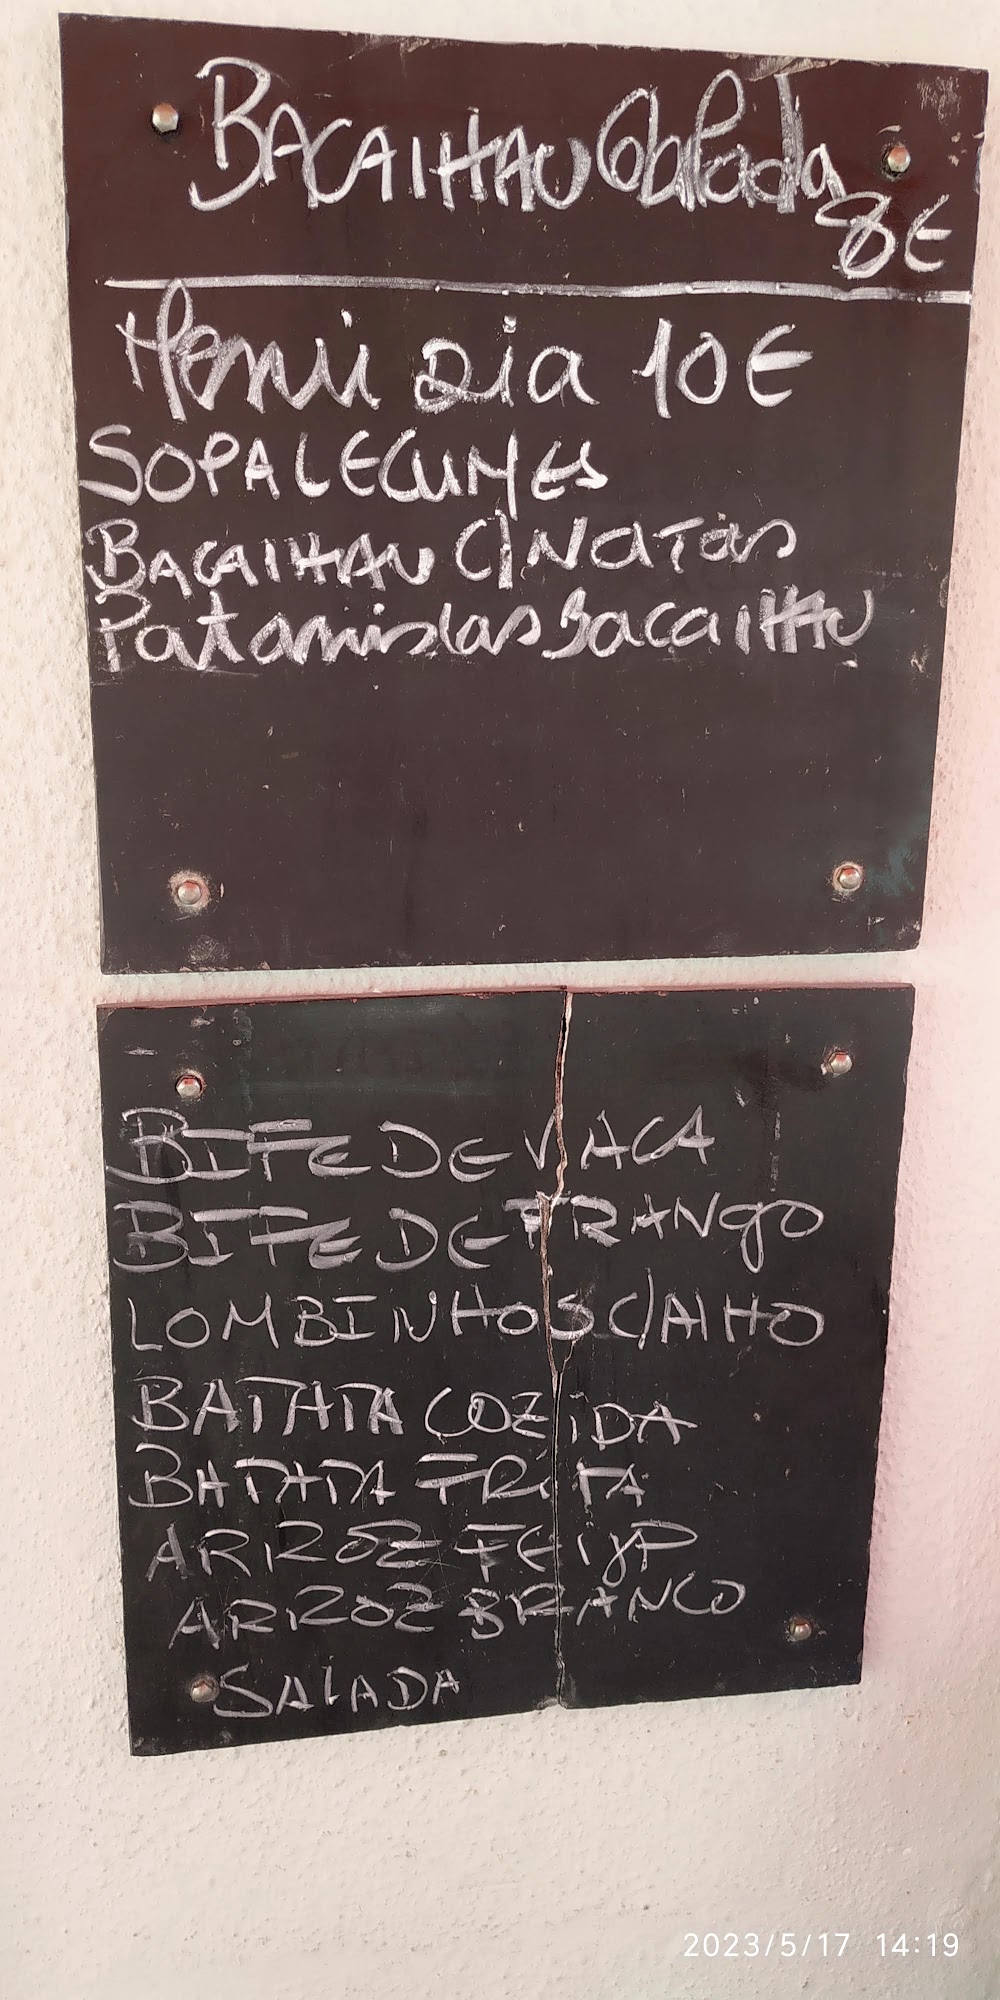 BACAlHAU Salada
8€
Menú dia 10€
SOPA LEGUMES
BACAlHAU C/NATAS
Patanislas BacalHAU
BIFE DE VACA
BIFE DE FRANgO
LOMBINHOS C/AlHO
BATATA COZIDA
BATATA FRITA
ARROZ FEIJÃO
ARROZ BRANCO
SAlADA
2023/5/17 14:19